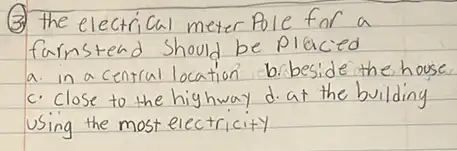 ③ the electrical meter Pole for a
farmstead should be Placed
a. in a central location b. beside the house
c. close to the highway d. at the building
using the most electricity